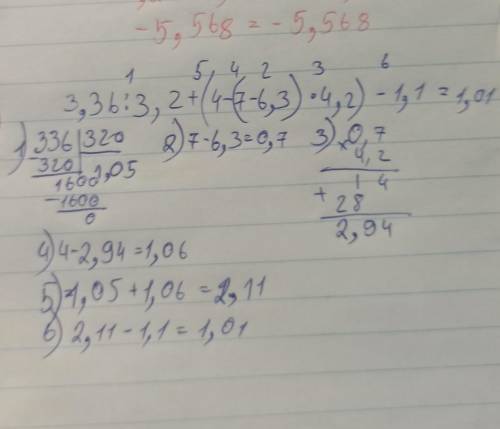 -5,568 = -5,568
1 5, 4 2 3 6
3,36:3,2+(4-(7-6,3)·4,2)-1,1=1,01
1) 336 | 320 2) 7-6,3=0,7 3) 0,7
320 1,05 × 4,2
1600 1 4
-1600 + 28
0 2,94
4) 4-2,94=1,06
5) 1,05+1,06=2,11
6) 2,11-1,1=1,01